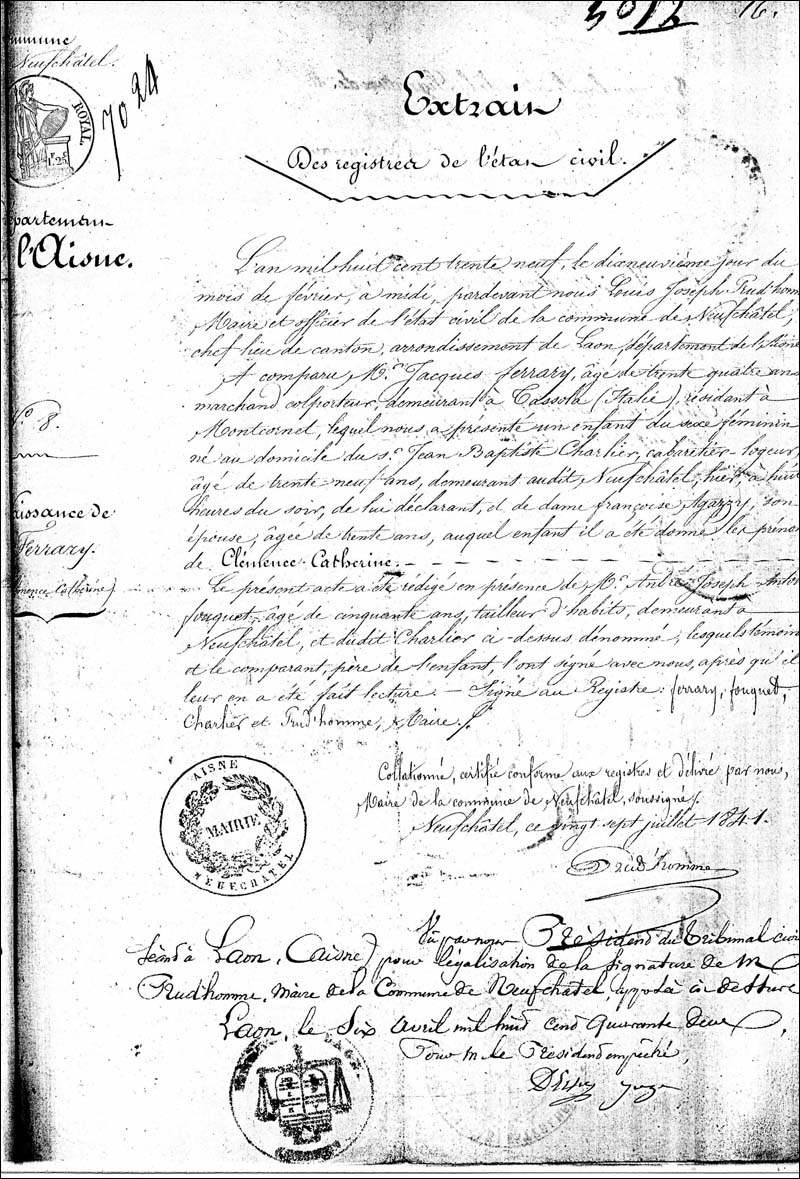 5012 16.
mmune
Neufchâtel.
ROYAL
1F 25C
7024
Extrait
Des registres de l'état civil.
épartement
l'Aisne.
L'an mil huit cent trente neuf, le dixneuvième jour du
mois de février, à midi, pardevant nous Louis Joseph Prud'hom
Maire et officier de l'état civil de la commune de Neufchâtel,
chef lieu de canton, arrondissement de Laon, département de l'Aisne
A comparu, M.r Jacques ferrary, âgé de trente quatre ans
marchand colporteur, demeurant à Cassola (Italie), résidant à
Montcornet, lequel nous a présenté un enfant du sexe féminin
né au domicile du s.r Jean Baptiste Charlier, cabaretier-logeur,
âgé de trente-neuf ans, demeurant audit Neufchâtel, hier, à huit
heures du soir, de lui déclarant, et de dame françoise Agazzy, son
épouse, âgée de trente ans, auquel enfant il a été donné les prénom
de Clémence-Catherine.
N.o 8.
aissance de
Ferrary.
émence Catherine)
Le présent acte a été rédigé en présence de M.r André-Joseph-Antoi
fouquet, âgé de cinquante ans, tailleur d'habits, demeurant à
Neufchâtel, et dudit Charlier ci-dessous dénommé, lesquels témoins
et le comparant, père de l'enfant l'ont signé avec nous, après qu'il
leur en a été fait lecture. — Signé au Registre: ferrary, fouquet,
Charlier et Prud'homme, Maire.
Collationné, certifié conforme aux registres et délivré par nous,
Maire de la commune de Neufchâtel, soussigné.
Neufchâtel, ce vingt sept juillet 1841.
Prud'homme
AISNE
MAIRIE
NEUFCHATEL
Vu par nous Président du Tribunal civil
séant à Laon, (aisne) pour légalisation de la signature de M
Prudhomme, maire de la Commune de Neufchatel, apposée ci dessus
Laon, le Six avril mil huit cent Quarante deux,
Pour M. le Président empêché,
juge
LAON